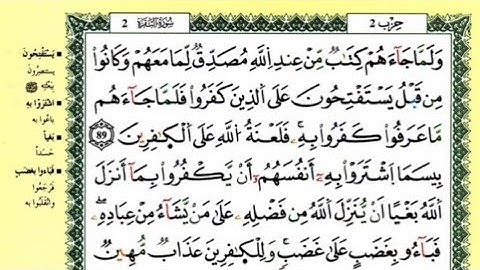 حِزْب 2
سُورَةُ البَقَرَة 2
وَلَمَّا جَآءَهُمْ كِتَٰبٌ مِّنْ عِندِ اِ۬للَّهِ مُصَدِّقٌ لِّمَا مَعَهُمْ وَكَانُواْ
مِن قَبْلُ يَسْتَفْتِحُونَ عَلَى اَ۬لذِينَ كَفَرُواْ فَلَمَّا جَآءَهُم
مَّا عَرَفُواْ كَفَرُواْ بِهِۦ فَلَعْنَةُ اُ۬للَّهِ عَلَى اَ۬لْكٰ۪فِرِينَ 89
بِيسَمَا اَ۪شْتَرَوْاْ بِهِۦٓ أَنفُسَهُمُۥٓ أَنْ يَّكْفُرُواْ بِمَآ أَنزَلَ
اَ۬للَّهُ بَغْياً اَنْ يُّنَزِّلَ اَ۬للَّهُ مِن فَضْلِهِۦ عَلَىٰ مَنْ يَّشَآءُ مِنْ عِبَادِهِۦ
فَبَآءُو بِغَضَبٍ عَلَىٰ غَضَبٍ وَلِلْكٰ۪فِرِينَ عَذَابٌ مُّهِينٌ
يَسْتَفْتِحُونَ
يستنصرون
ببعثته ﷺ
اشْتَرَوْا بِهِ
باعوا به
بَغْياً
حسداً
فَبَاءُو بِغَضَبٍ
فرجعوا
وانقلبوا به